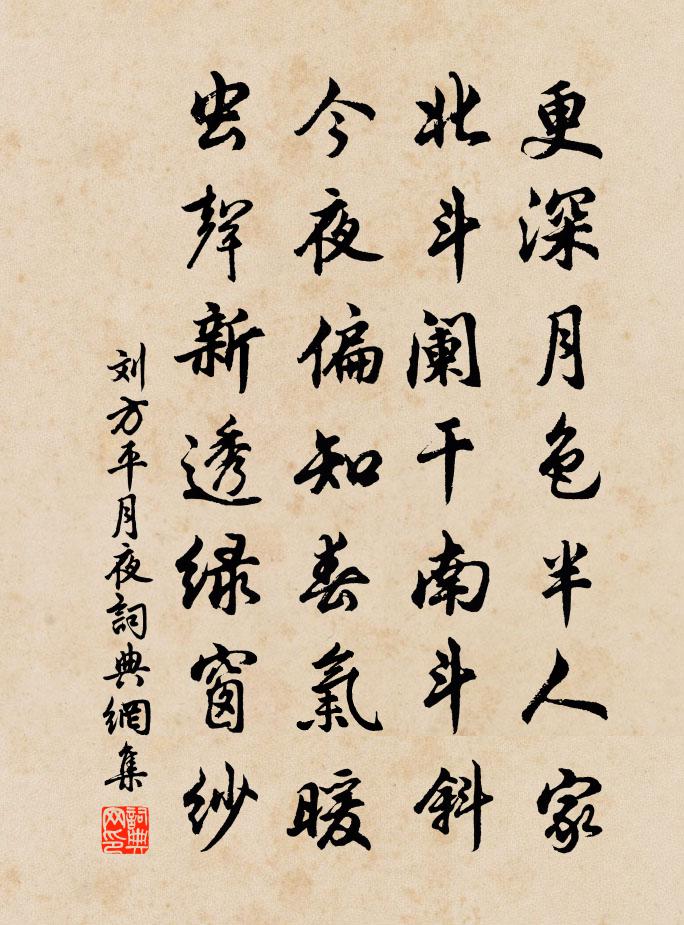 更深月色半人家
北斗阑干南斗斜
今夜偏知春氣暖
虫聲新透绿窗纱
刘方平月夜詞典網集
詞典网印